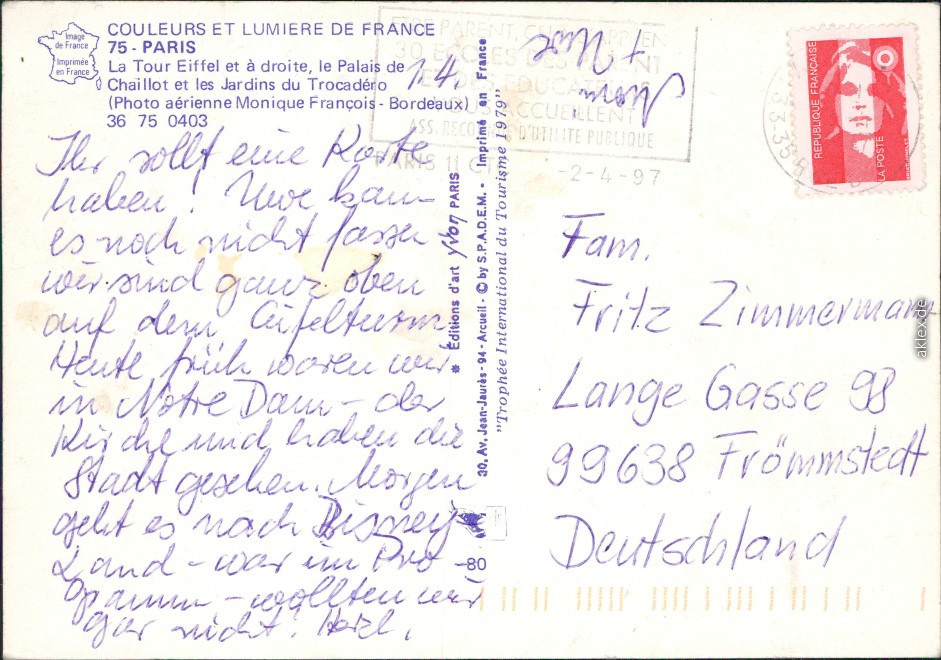 COULEURS ET LUMIERE DE FRANCE
75 - PARIS
La Tour Eiffel et à droite, le Palais de
Chaillot et les Jardins du Trocadéro
(Photo aérienne Monique François - Bordeaux)
36 75 0403
Image
de France
Imprimée
en France
1.4.
Ihr sollt eine Karte
haben. Uwe kann
es noch nicht fassen
wir sind ganz oben
auf dem Eifelturm
Heute früh waren wir
in Notre Dam - der
Kirche und haben die
Stadt gesehen. Morgen
geht es nach Disney-
Land - war im Pro
gramm - wollten wir
gar nicht! Herzl.
+ Uwe
* Éditions d'art yvon PARIS
30, Av. Jean-Jaurès - 94 - Arcueil - © by S.P.A.D.E.M. - Imprimé en France
"Trophée International du Tourisme 1979"
-80
PARENT
30 ECOLES
ACCUEILLENT
ASS. RECONNUE D'UTILITE PUBLIQUE
PARIS 11
-2-4-97
REPUBLIQUE FRANÇAISE
LA POSTE
Fam.
Fritz Zimmermann
Lange Gasse 98
99638 Frömmstedt
Deutschland
akleX.de